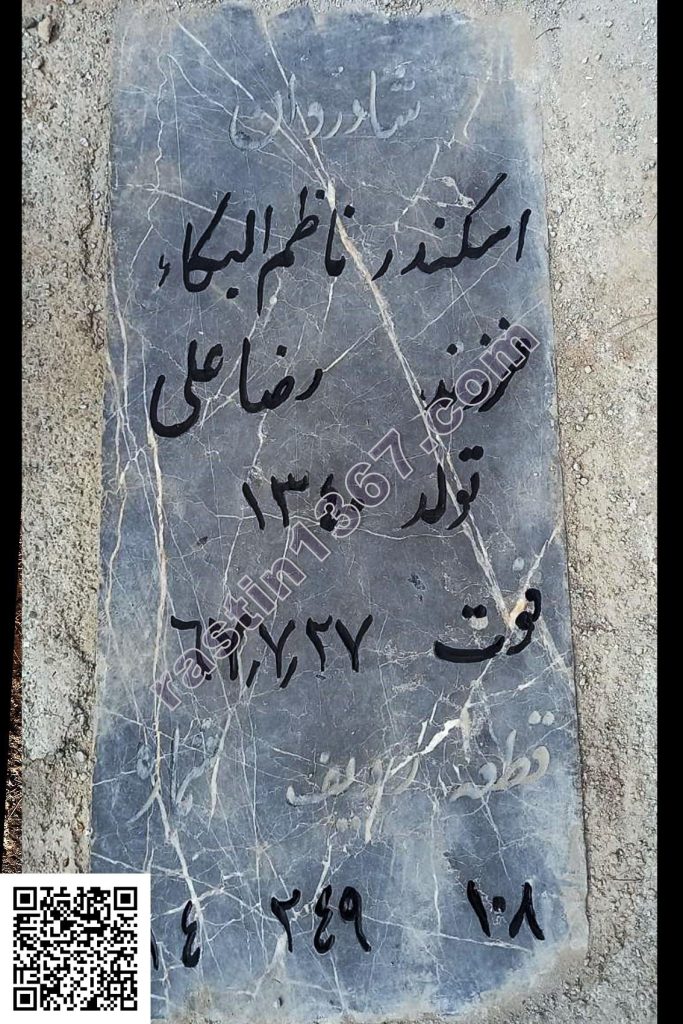 شادروان
اسکندر ناظم البکاء
فرزند رضا علی
تولد ۱۳۴۰
فوت ۲۷ر۷ر۶۲
قطعه ردیف شماره
۱۰۸ ۲۴۹ ۱۴
rastin1367.com